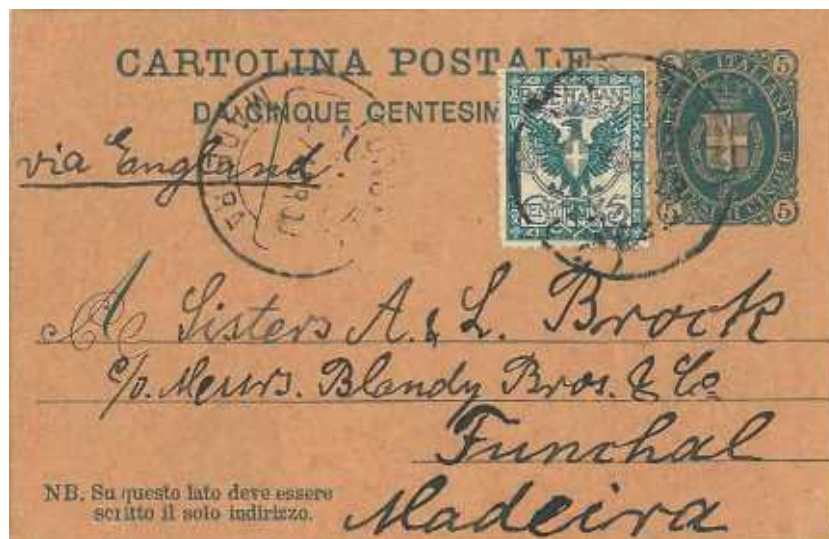 CARTOLINA POSTALE
DA CINQUE CENTESIM
5 5
5 5
via England!
A Sisters A. & L. Brock
c/o. Messrs. Blandy Bros. & Co
Funchal
Madeira
NB. Su questo lato deve essere
scritto il solo indirizzo.